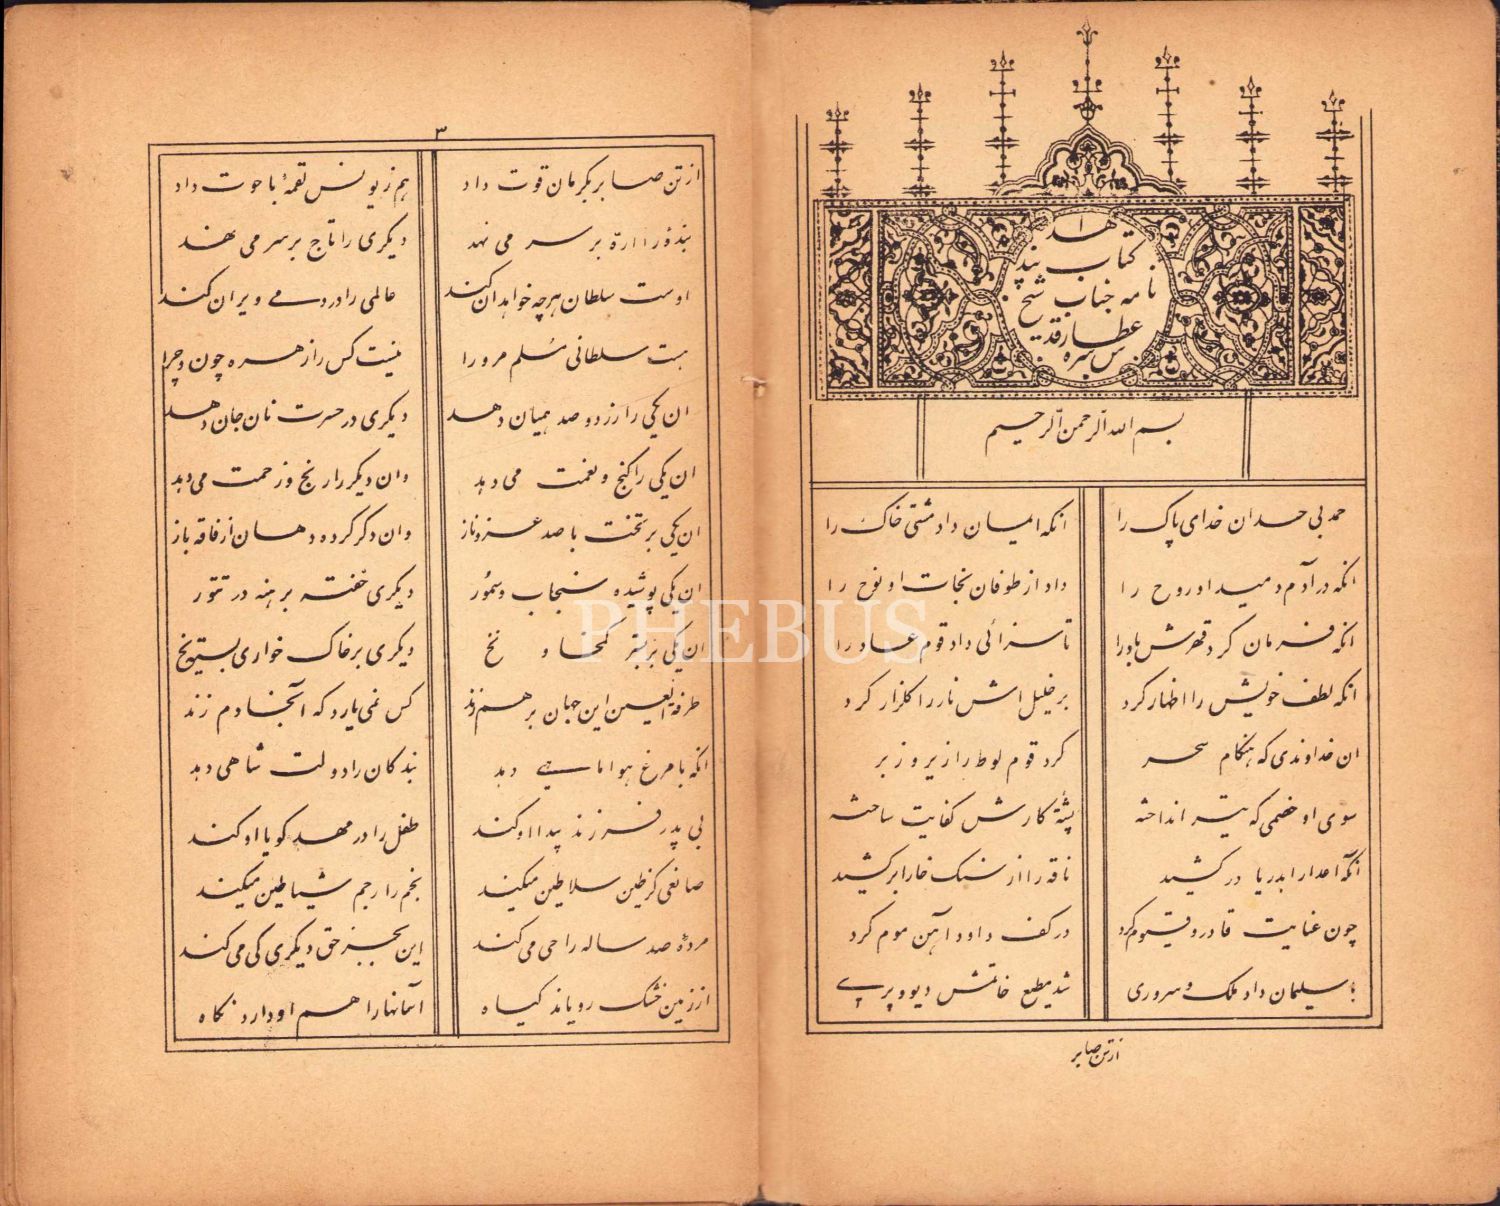 هذا
کتاب پند
نامه جناب شیخ
عطار قد
س سره
بسم الله الرحمن الرحیم
حمد بی حد ان خدای پاک را انکه ایمان داد مشتی خاک را
انکه در آدم دمید او روح را داد از طوفان نجات او نوح را
انکه فرمان کرد قهرش باد را تا سزائی داد قوم عاد را
انکه لطف خویش را اظهار کرد بر خلیل اش نار را کلزار کرد
ان خداوندی که هنکام سحر کرد قوم لوط را زیر و زبر
سوی او خصمی که تیر انداخته پشهٔ کارش کفایت ساخته
انکه آعدا را بدریا در کشید ناقه را از سنک خارا بر کشید
چون عنایت قادر و قیوم کرد در کف داود آهن موم کرد
با سلیمان داد ملک و سروری شد مطیع خاتمش دیو و پری
از تن صابر
PHEBUS
۳
از تن صابر بکرمان قوت داد هم ز یونس لقمهٔ با حوت داد
بندهٔ را اره بر سر می نهد دیکری را تاج بر سر می نهد
اوست سلطان هرچه خواهد ان کند عالمی را در دمی ویران کند
هست سلطانی مسلم مرو را نیست کس را زهره چون و چرا
ان یکی را زر دو صد همیان دهد دیکری در حسرت نان جان دهد
ان یکی را کنج و نعمت می دهد وان دیکر را رنج و زحمت می دهد
ان یکی بر تخت با صد عز و ناز وان دکر کرده دهان از فاقه باز
ان یکی پوشیده سنجاب و سمور دیکری خفته برهنه در تنور
ان یکی بر بستر کمخا و نخ دیکری بر خاک خواری بسته یخ
طرفة العین این جهان برهم زند کس نمی یارد که آنجا دم زند
انکه با مرغ هوا ماهی دهد بندکان را دولت شاهی دهد
بی پدر فرزند پیدا او کند طفل را در مهد کویا او کند
صانعی کز طین سلاطین میکند نجم را رجم شیاطین میکند
مردهٔ صد ساله را حی می کند این بجز حق دیکری کی می کند
از زمین خشک رویاند کیاه آسمانها را هم او دارد نکاه